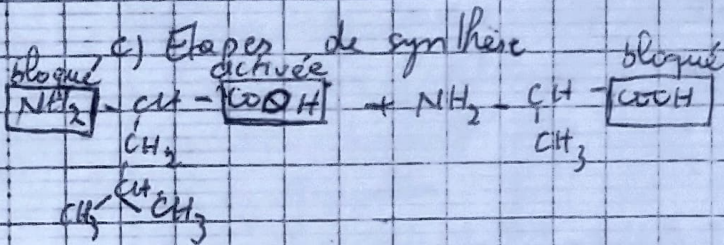 c) Etapes de synthèse
bloqué activée bloqué
NH2 - CH - COOH + NH2 - CH - COOH
CH2 CH3
CH
CH3 CH3